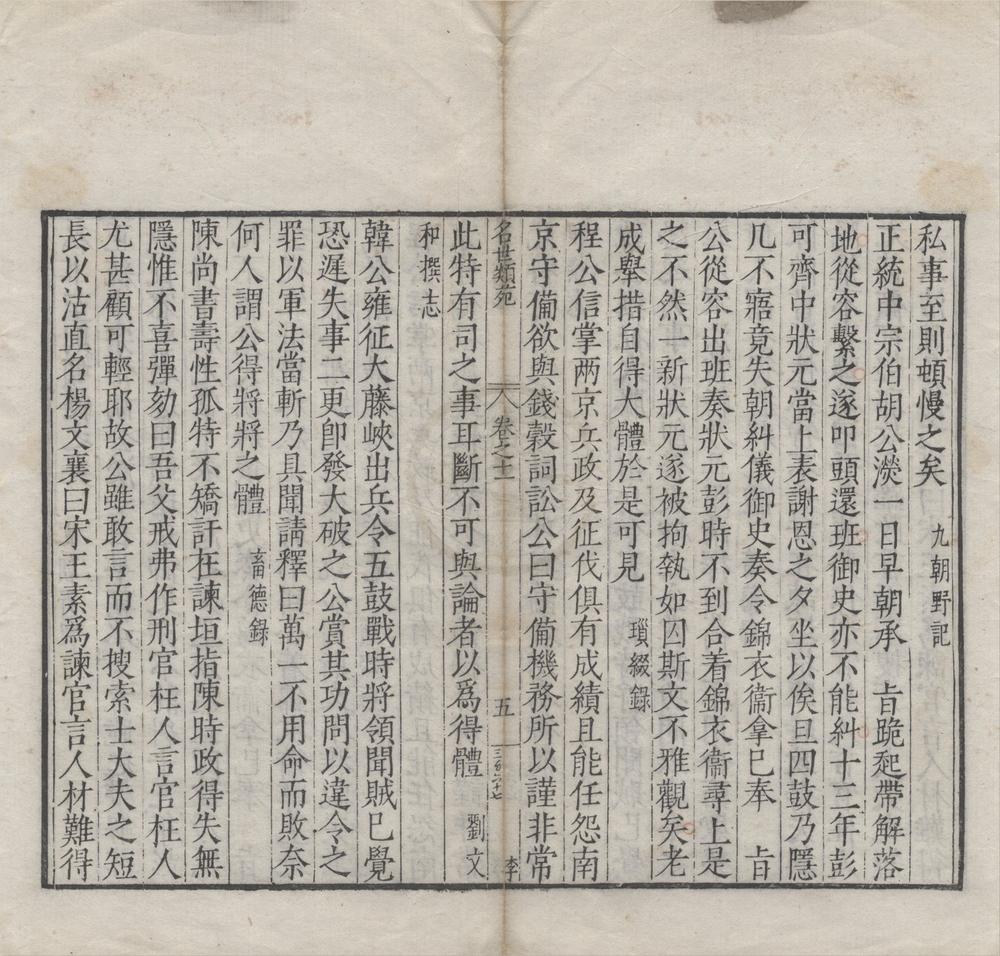 私事至則頓慢之矣　九朝野記
正統中宗伯胡公濙一日早朝承　㫖跪起帶解落
地從容繫之遂叩頭還班御史亦不能糾十三年彭
可齊中狀元當上表謝恩之夕坐以俟旦四鼓乃隱
几不寤竟失朝糾儀御史奏令錦衣衞拿已奉　㫖
公從容出班奏狀元彭時不到合着錦衣衞尋上是
之不然一新狀元遂被拘執如囚斯文不雅觀矣老
成舉措自得大體於是可見　瑣綴錄
程公信掌兩京兵政及征伐俱有成績且能任怨南
京守備欲與錢穀詞訟公曰守備機務所以謹非常
名世類苑　卷之十二　五　李
此特有司之事耳斷不可與論者以爲得體　劉文
和撰志
韓公雍征大藤峽出兵令五鼓戰時將領聞賊已覺
恐遲失事二更卽發大破之公賞其功問以違令之
罪以軍法當斬乃具聞請釋曰萬一不用命而敗奈
何人謂公得將將之體　畜德錄
陳尚書壽性孤特不矯訐在諫垣指陳時政得失無
隱惟不喜彈劾曰吾父戒弗作刑官枉人言官枉人
尤甚顧可輕耶故公雖敢言而不搜索士大夫之短
長以沽直名楊文襄曰宋王素爲諫官言人材難得